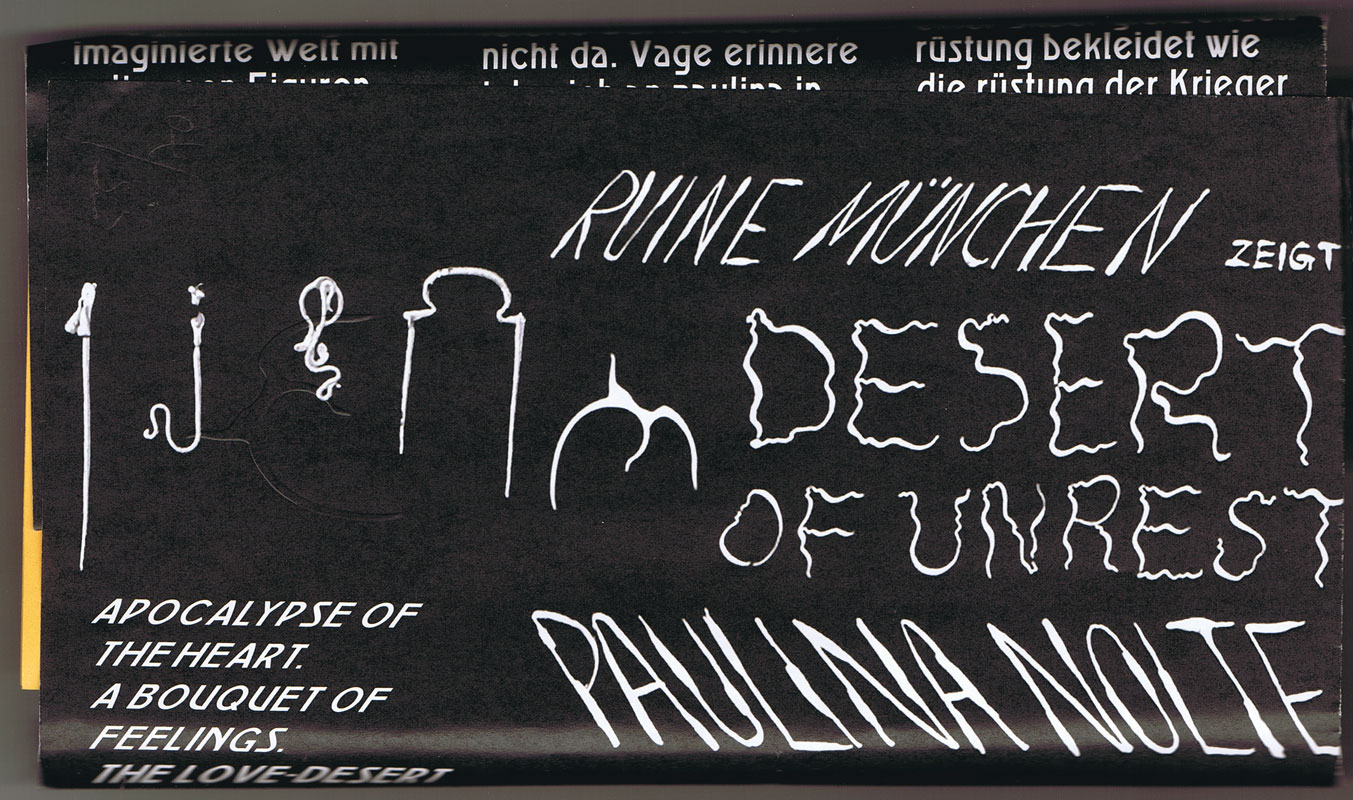 imaginierte Welt mit
Figuren
nicht da. Vage erinnere
ich mich an paulina in
rüstung bekleidet wie
die rüstung der Krieger
RUINE MÜNCHEN ZEIGT
DESERT
OF UNREST
PAULINA NOLTE
APOCALYPSE OF
THE HEART.
A BOUQUET OF
FEELINGS.
THE LOVE-DESERT